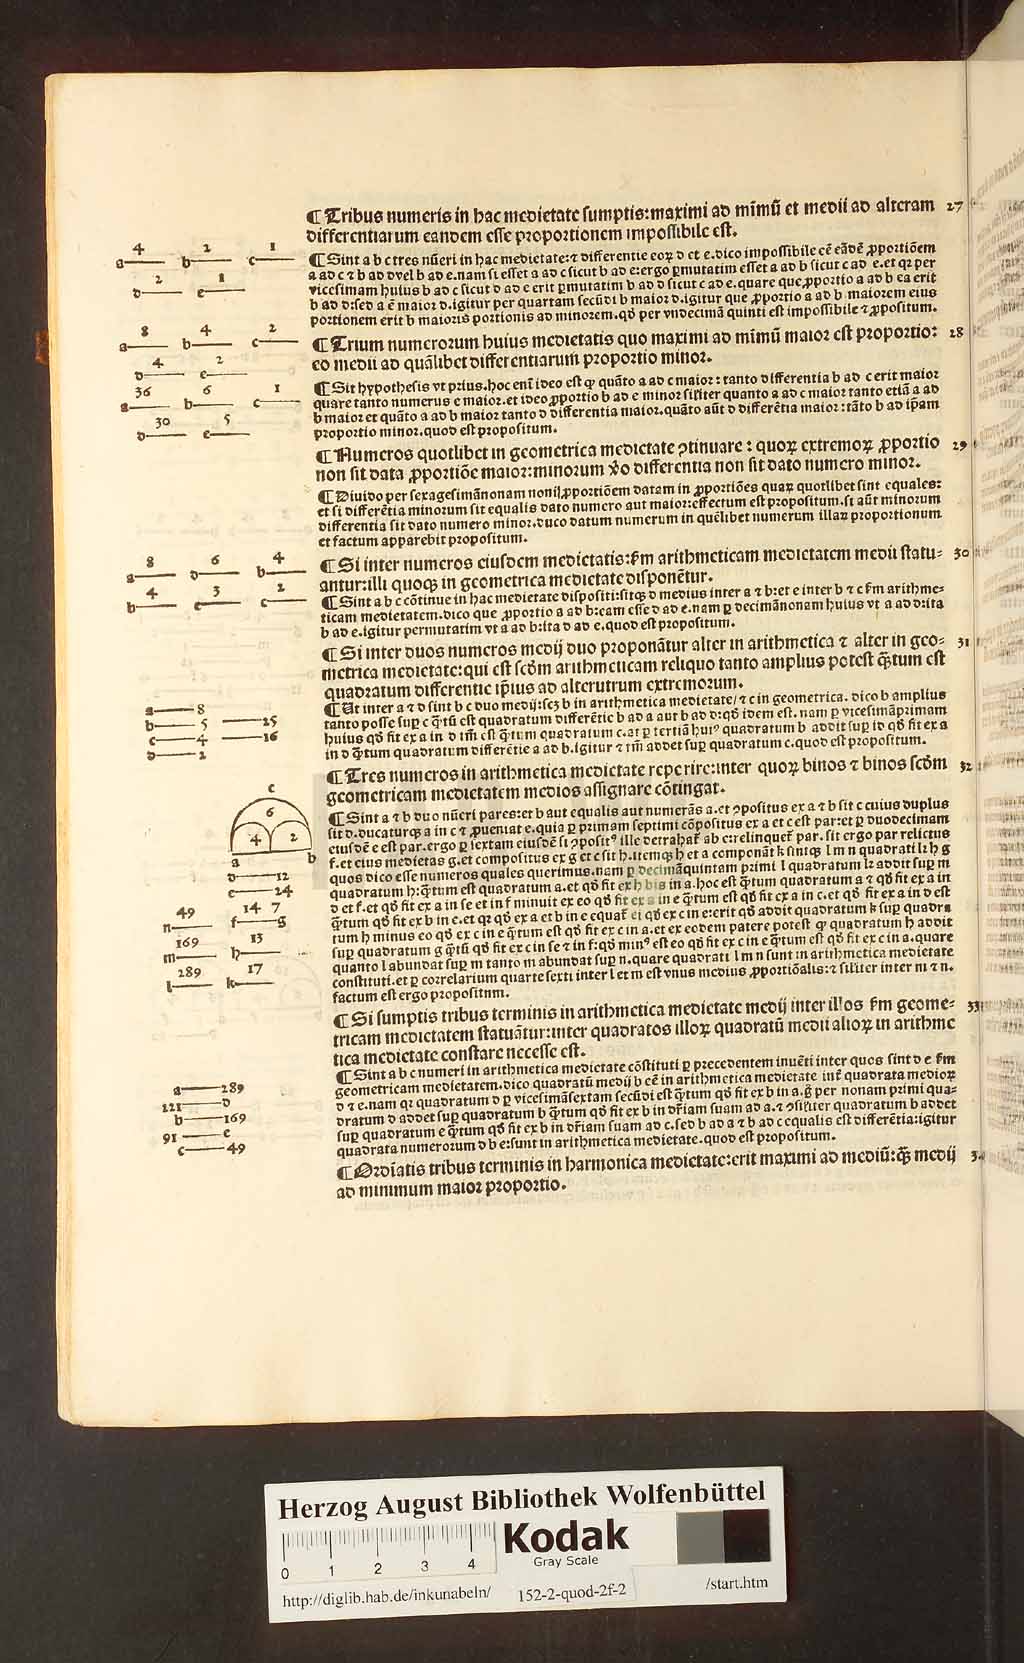 ¶ Tribus numeris in hac medietate sumptis:maximi ad mīmū et medii ad alteram 27
differentiarum eandem esse proportionem impossibile est.
4 2 1
a b c
2 1
d e
¶ Sint a b c tres nūeri in hac medietate:⁊ differentie eoꝝ d et e.dico impossibile eē eādē ꝓportiōem
a ad c ⁊ b ad d vel b ad e.nam si esset a ad c sicut b ad e:ergo ꝑmutatim esset a ad b sicut c ad e.et qꝛ per
vicesimam huius b ad c sicut d ad e erit ꝑmutatim b ad d sicut c ad e.quare que ꝓportio a ad b ea erit
b ad d:sed a ē maior d.igitur per quartam secūdi b maior d.igitur que ꝓportio a ad b maiorem eius
portionem erit b maioris portionis ad minorem.qđ per vndecimā quinti est impossibile ⁊ ꝓpositum.
8 4 2
a b c
4 2
d e
¶ Trium numerorum huius medietatis quo maximi ad mīmū maior est proportio: 28
eo medii ad quālibet differentiarum proportio minor.
36 6 1
a b c
30 5
d e
¶ Sit hypothesis vt prius.hoc enī ideo est ꝙ quāto a ad c maior: tanto differentia b ad c erit maior
quare tanto numerus e maior.et ideo ꝓportio b ad e minor sil'iter quanto a ad c maior tanto etiā a ad
b maior et quāto a ad b maior tanto d differentia maior.quāto aūt d differētia maior: tāto b ad ip̄am
proportio minor.quod est propositum.
¶ Numeros quotlibet in geometrica medietate ɔtinuare: quoꝝ extremoꝝ ꝓportio 29
non sit data ꝓportiōe maior:minorum v̊o differentia non sit dato numero minor.
¶ Diuido per sexagesimānonam noni ꝓportiōem datam in ꝓportiōes quaꝝ quotlibet sint equales:
et si differētia minorum sit equalis dato numero aut maior:effectum est propositum.si aūt minorum
differentia sit dato numero minor.duco datum numerum in quēlibet numerum illaꝝ proportionum
et factum apparebit propositum.
8 6 4
a d b
4 3 2
b e c
¶ Si inter numeros eiusdem medietatis:ẜm arithmeticam medietatem medii statu= 30
antur:illi quoqꝫ in geometrica medietate disponētur.
¶ Sint a b c cōtinue in hac medietate dispositi:sitqꝫ d medius inter a ⁊ b:et e inter b ⁊ c ẜm arithme=
ticam medietatem.dico que ꝓportio a ad b:eam esse d ad e.nam ꝑ decimānonam huius vt a ad d:ita
b ad e.igitur permutatim vt a ad b:ita d ad e.quod est propositum.
¶ Si inter duos numeros medij duo proponātur alter in arithmetica ⁊ alter in geo= 31
metrica medietate:qui est scđm arithmeticam reliquo tanto amplius potest q̄ꝫtum est
quadratum differentie ip̄ius ad alterutrum extremorum.
a 8
b 5 25
c 4 16
d 2
¶ Ut inter a ⁊ d sint b c duo medij:scꝫ b in arithmetica medietate/⁊ c in geometrica. dico b amplius
tanto posse suꝑ c q̄ꝫtū est quadratum differētie b ad a aut b ad d:qđ idem est. nam ꝑ vicesimāprimam
huius qđ fit ex a in d tm̄ est q̄ꝫtum quadratum c.at ꝑ tertiā huiꝰ quadratum b addit suꝑ id qđ fit ex a
in d q̄ꝫtum quadratum differētie a ad b.igitur ⁊ tm̄ addet suꝑ quadratum c.quod est propositum.
¶ Tres numeros in arithmetica medietate reperire:inter quoꝝ binos ⁊ binos scđm 32
geometricam medietatem medios assignare cōtingat.
c
6
4 2
a b
d 12
e 24
14 7
f g
49
n
169 13
m h
289 17
l k
¶ Sint a ⁊ b duo nūeri pares:et b aut equalis aut numerās a.et ɔpositus ex a ⁊ b sit c cuius duplus
sit d.ducaturqꝫ a in c ⁊ ꝓueniat e.quia ꝑ primam septimi cōpositus ex a et c est par:et ꝑ duodecimam
eiusdē e est par.ergo ꝑ sextam eiusdē si ɔpositꝰ ille detrahat᷑ ab e:relinquet᷑ par.sit ergo par relictus
f.et eius medietas g.et compositus ex g et c sit h.itemqꝫ h et a componāt k sintqꝫ l m n quadrati k h g
quos dico esse numeros quales querimus.nam ꝑ decimāquintam primi l quadratum k addit suꝑ m
quadratum h:q̄ꝫtum est quadratum a.et qđ fit ex h bis in a.hoc est q̄ꝫtum quadratum a ⁊ qđ fit ex a in
d et f.et qđ fit ex a in se et in f minuit ex eo qđ fit ex a in e q̄ꝫtum est qđ fit ex a in c.et qđ fit ex a in d est
q̄ꝫtum qđ fit ex b in e.et qꝛ qđ ex a et b in e equat᷑ ei qđ ex c in e:erit qđ addit quadratum k suꝑ quadra
tum h minus eo qđ ex c in e q̄ꝫtum est qđ fit ex c in a.et ex eodem patere potest ꝙ quadratum h addit
suꝑ quadratum g q̄ꝫtū qđ fit ex c in se ⁊ in f:qđ minꝰ est eo qđ fit ex c in e q̄ꝫtum est qđ fit ex c in a.quare
quanto l abundat suꝑ m tanto m abundat suꝑ n.quare quadrati l m n sunt in arithmetica medietate
constituti.et ꝑ correlarium quarte sexti inter l et m est vnus medius ꝓportiōalis:⁊ sil'iter inter m ⁊ n.
factum est ergo propositnm.
¶ Si sumptis tribus terminis in arithmetica medietate medij inter illos ẜm geome= 33
tricam medietatem statuātur:inter quadratos illoꝝ quadratū medii alioꝝ in arithme
tica medietate constare necesse est.
a 289
221 d
b 169
91 e
c 49
¶ Sint a b c numeri in arithmetica medietate cōstituti ꝑ precedentem inuēti inter quos sint d e ẜm
geometricam medietatem.dico quadratū medij b eē in arithmetica medietate int᷑ quadrata medioꝝ
d ⁊ e.nam qꝛ quadratum d ꝑ vicesimāsextam secūdi est q̄ꝫtum qđ fit ex b in a.g̊ per nonam primi qua=
dratum d addet suꝑ quadratum b q̄ꝫtum qđ fit ex b in dr̄iam suam ad a.⁊ ɔsil'iter quadratum b addet
suꝑ quadratum e q̄ꝫtum qđ fit ex b in dr̄iam suam ad c.sed b ad a ⁊ b ad c equalis est differētia:igitur
quadrata numerorum d b e:sunt in arithmetica medietate.quod est propositum.
¶ Ordīatis tribus terminis in harmonica medietate:erit maximi ad mediū:q̄ꝫ medij 34
ad minimum maior proportio.
Herzog August Bibliothek Wolfenbüttel
Kodak
Gray Scale
0 1 2 3 4
http://diglib.hab.de/inkunabeln/ 152-2-quod-2f-2 /start.htm